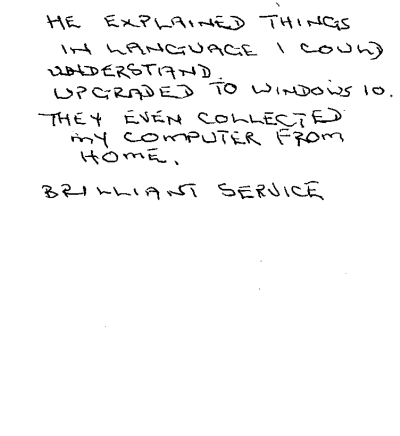 HE EXPLAINED THINGS
IN LANGUAGE I COULD
UNDERSTAND.
UPGRADED TO WINDOWS 10.
THEY EVEN COLLECTED
MY COMPUTER FROM
HOME.
BRILLIANT SERVICE